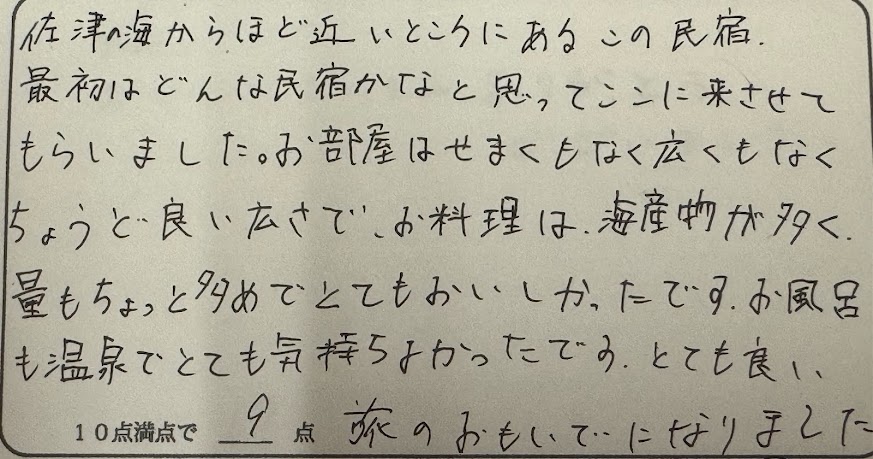 佐津の海からほど近いところにあるこの民宿.
最初はどんな民宿かなと思ってここに来させて
もらいました。お部屋はせまくもなく広くもなく
ちょうど良い広さで、お料理は、海産物が多く、
量もちょっと多めでとてもおいしかったです。お風呂
も温泉でとても気持ちよかったです。とても良い、
10点満点で 9 点 旅のおもいでになりました